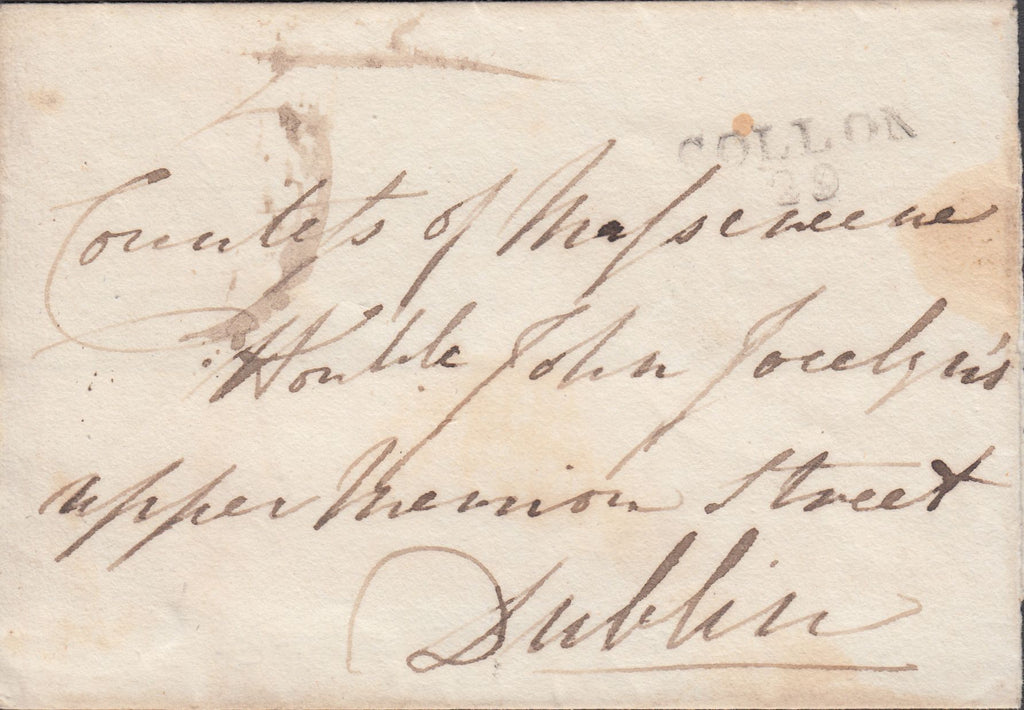 COLLON
29
Countess of Massereene
Honble John Jocelyn's
upper Merrion Street
Dublin